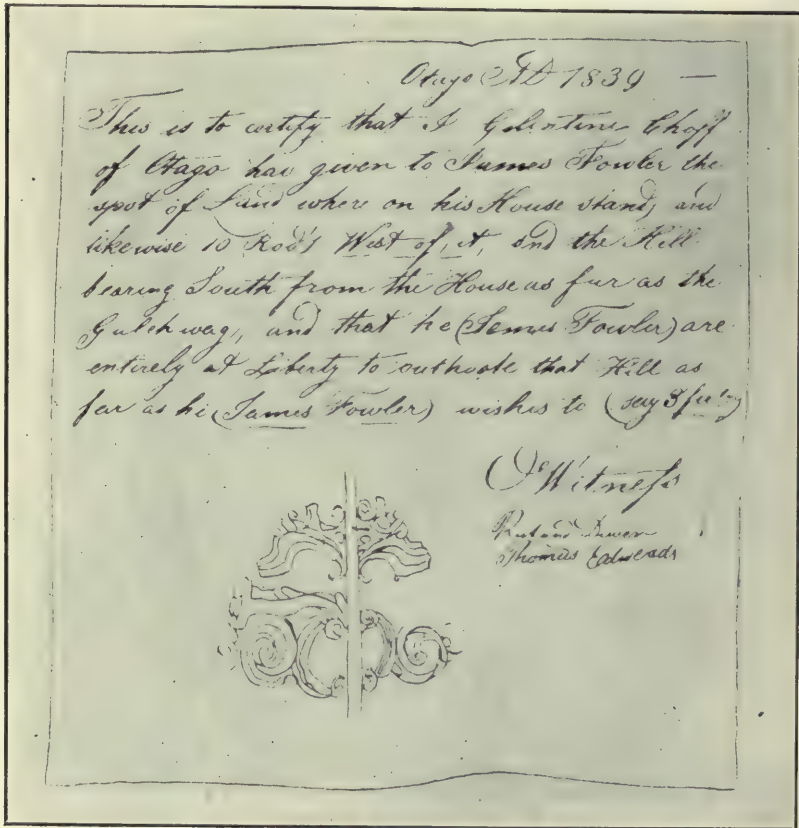 Otago AD 1839 —
This is to certify that I Golintine Choff
of Otago hav given to James Fowler the
spot of Land where on his House stands and
likewise 10 Rod's West of it, and the Hill
bearing South from the House as fur as the
and that he (James Fowler) are
entirely at Liberty to that Hill as
far as he (James Fowler) wishes to (say
Witness
Thomas Edwards